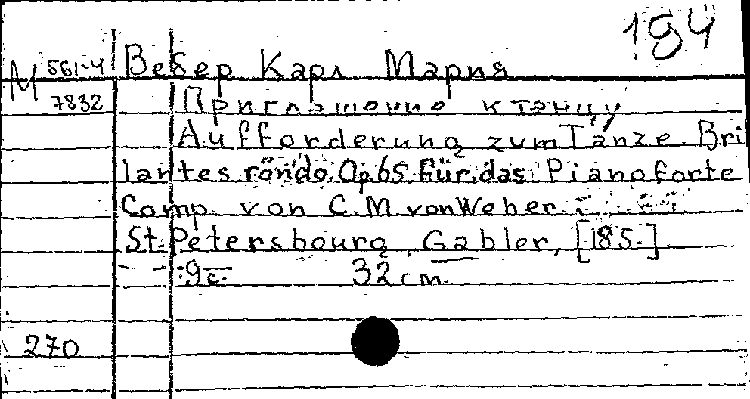 194
М 561-4 Вебер Карл Мария
7832 Приглашение к танцу
Aufforderung zum Tanze. Bri
lantes rondo. Op 65. Für das Pianoforte
Comp. von C. M. von Weber.
St. Petersbourg, Gabler, [185.]
9с. 32 cm.
270